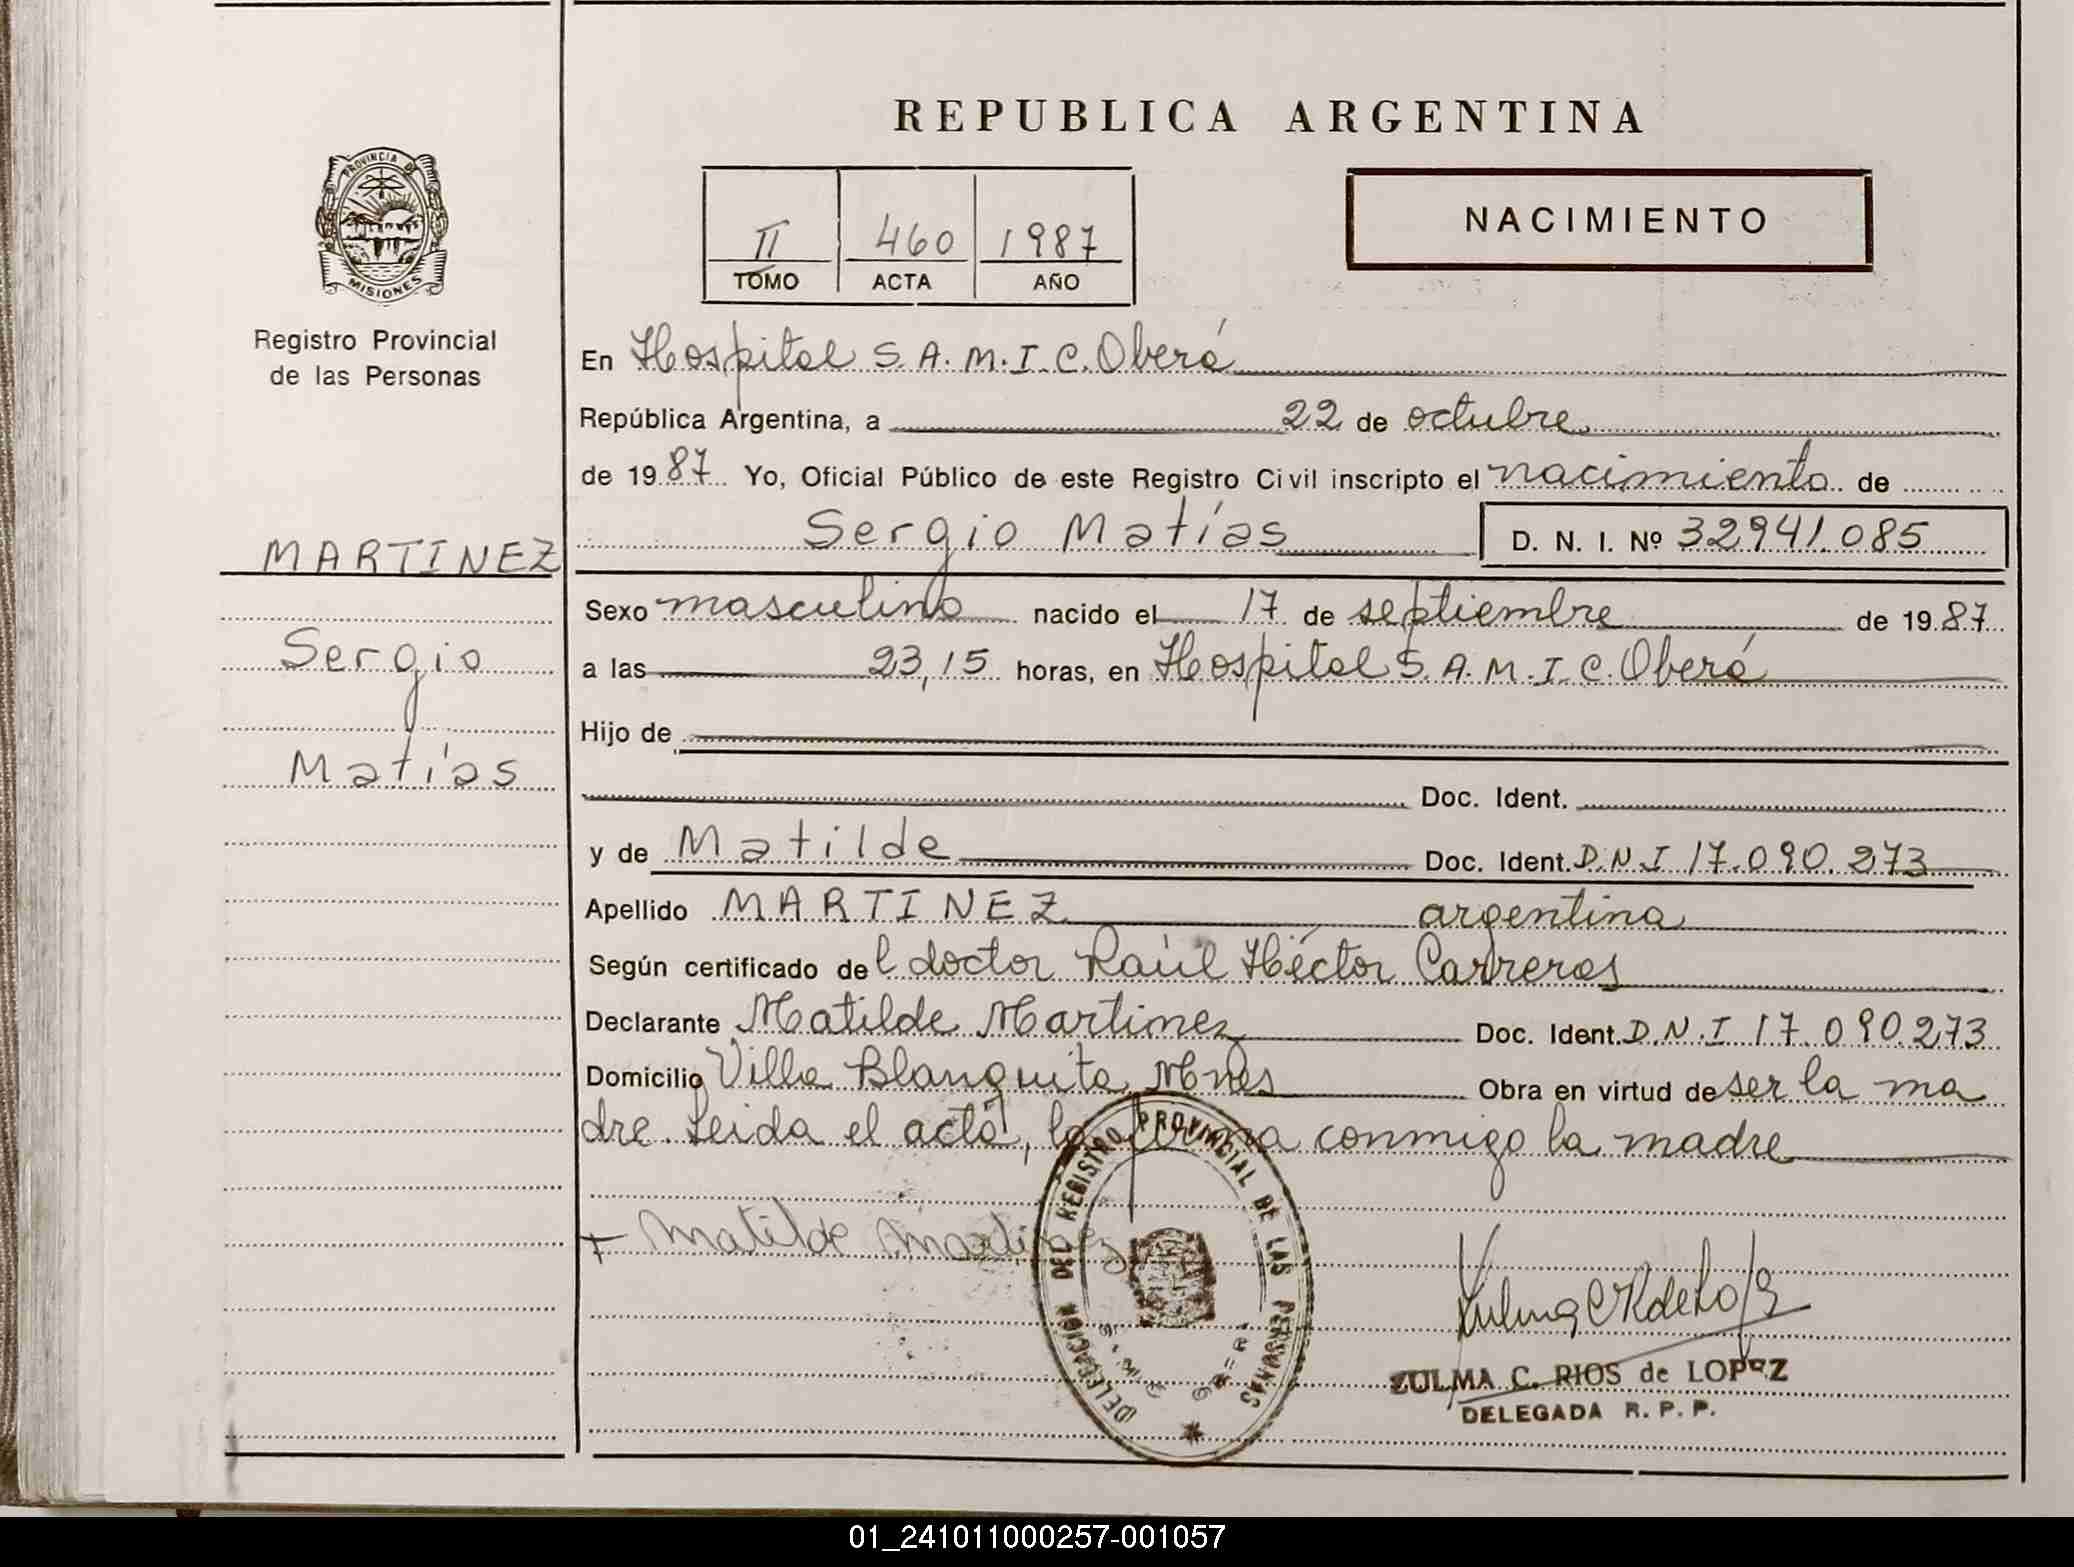 REPUBLICA ARGENTINA
PROVINCIA DE
MISIONES
Registro Provincial
de las Personas
II 460 1987
TOMO ACTA AÑO
NACIMIENTO
En Hospital S.A.M.I.C. Oberá
República Argentina, a 22 de octubre
de 1987 Yo, Oficial Público de este Registro Civil inscripto el nacimiento de
Sergio Matías D. N. I. Nº 32941.085
MARTINEZ
Sergio
Matías
Sexo masculino nacido el 17 de septiembre de 1987
a las 23,15 horas, en Hospital S.A.M.I.C. Oberá
Hijo de
Doc. Ident.
y de Matilde Doc. Ident. D.N.I 17.090.273
Apellido MARTINEZ argentina
Según certificado del doctor Raúl Héctor Carreras
Declarante Matilde Martinez Doc. Ident. D.N.I 17.090.273
Domicilio Villa Blanquita Mnes Obra en virtud de ser la ma
dre. Leida el acta, la firma conmigo la madre
+ Matilde Martinez
DELEGACION DEL REGISTRO PROVINCIAL DE LAS PERSONAS
ZULMA C. RIOS de LOPEZ
DELEGADA R. P. P.
01_241011000257-001057